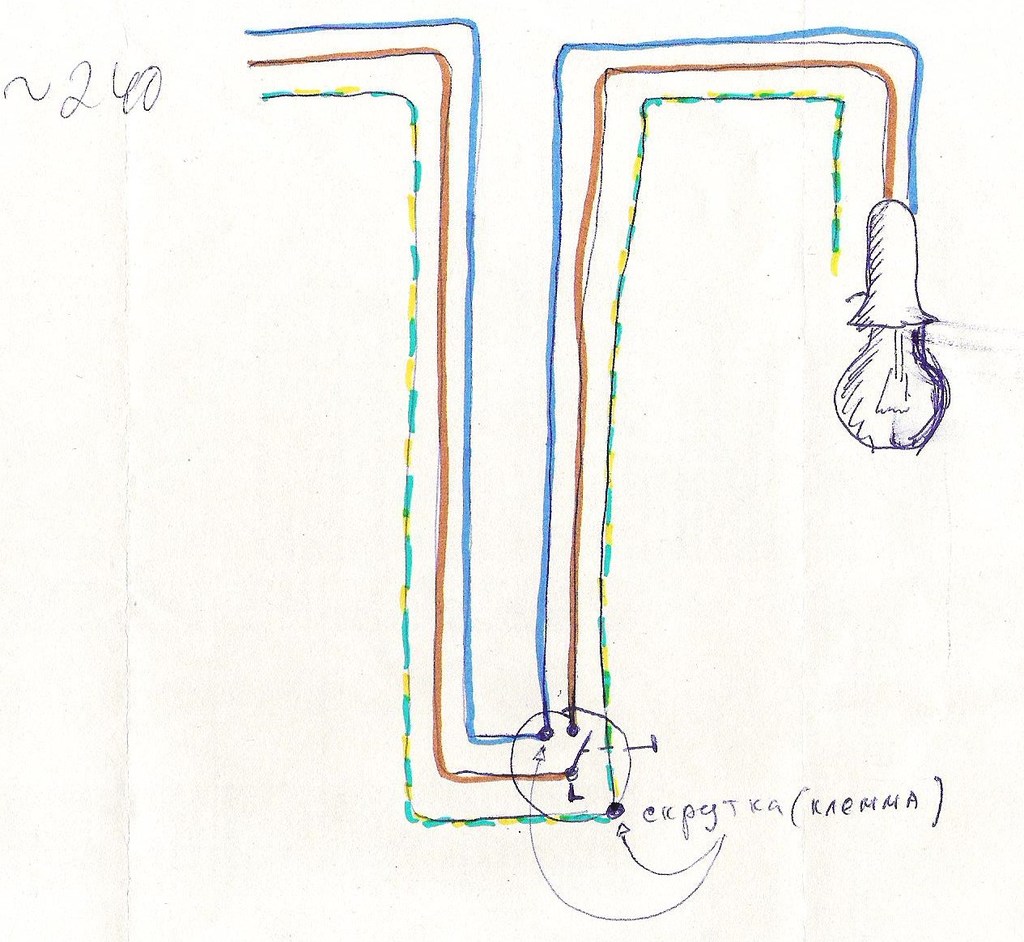 ~240
L
скрутка(клемма)